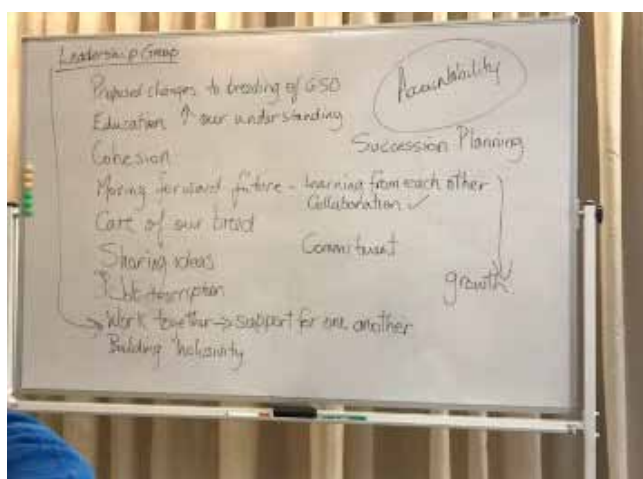 Leadership Group
Proposed changes to breeding of GSD
Education ↑ our understanding
Cohesion
Moving forward future - Learning from each other
Collaboration ✓
Care of our breed
Sharing ideas
Job description
Work together → support for one another
Building inclusivity
Accountability
Succession Planning
Commitment
growth